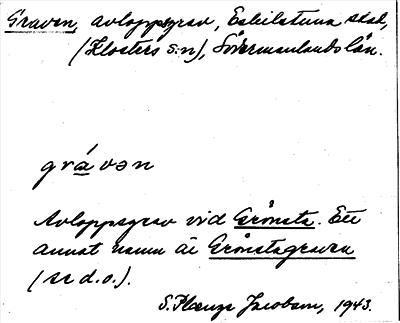 Graven, avloppsgrav, Eskilstuna stad,
(Klosters s:n), Södermanlands län.
grávǝn
Avloppsgrav vid Grönsta. Ett
annat namn är Grönstagraven
(se d.o.).
S. Plænge Jacobson, 1943.